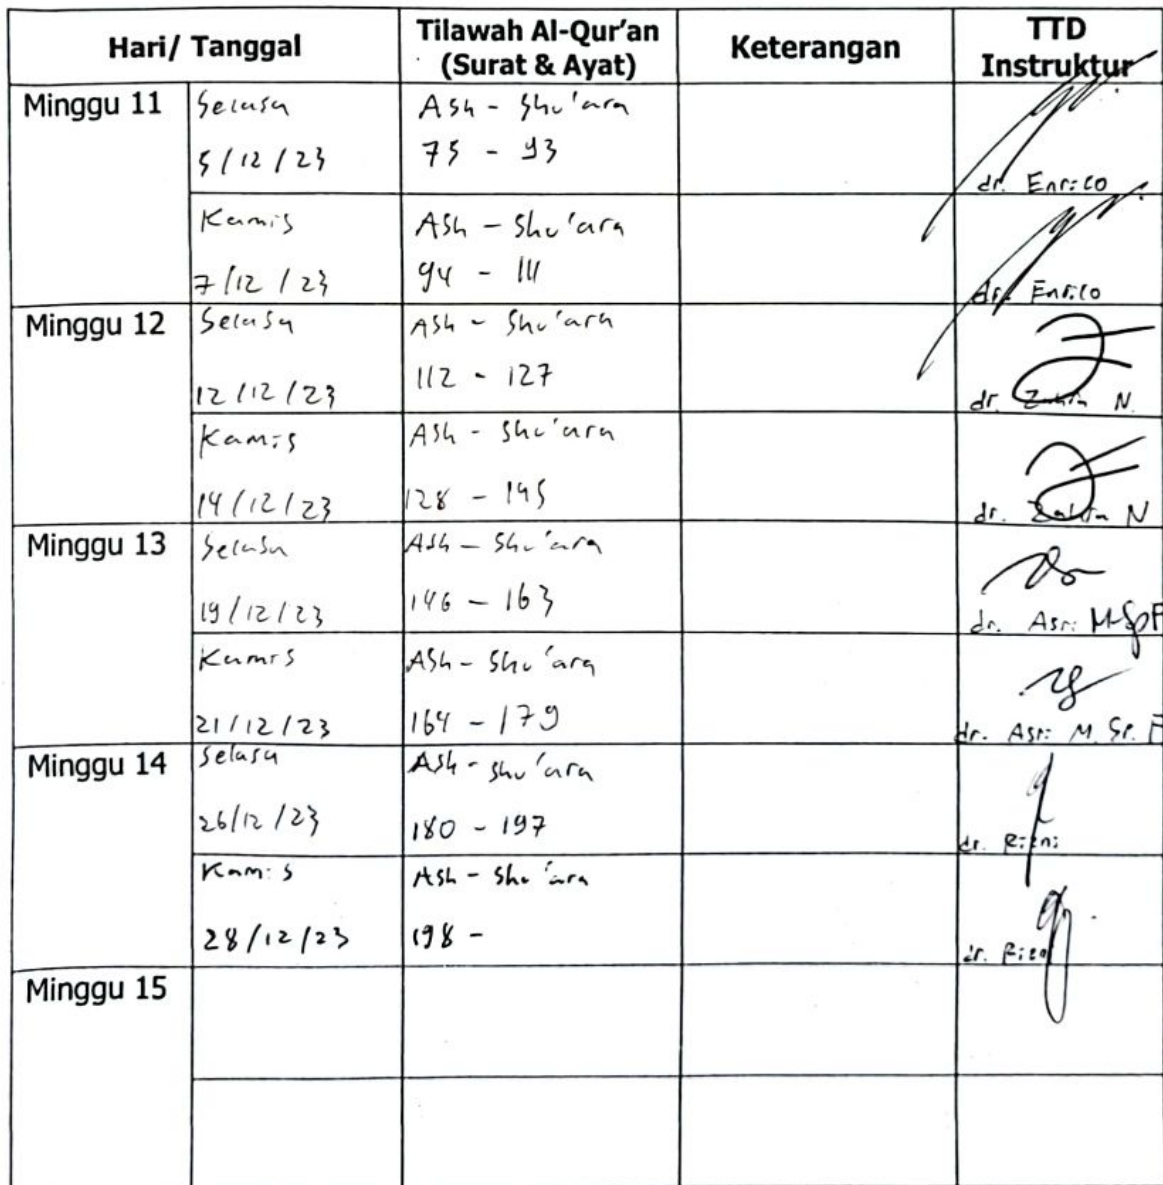 Hari/ Tanggal
Tilawah Al-Qur'an
(Surat & Ayat)
Keterangan
TTD
Instruktur
Minggu 11
Selasa
5/12/23
Ash - Shu'ara
75 - 93
dr. Enrico
Kamis
7/12/23
Ash - Shu'ara
94 - 111
dr. Enrico
Minggu 12
Selasa
12/12/23
Ash - Shu'ara
112 - 127
dr. N.
Kamis
14/12/23
Ash - Shu'ara
128 - 145
dr. N
Minggu 13
Selasa
19/12/23
Ash - Shu'ara
146 - 163
dr. Asri M.SpF
Kamis
21/12/23
Ash - Shu'ara
164 - 179
dr. Asri M. Sp. F
Minggu 14
Selasa
26/12/23
Ash - Shu'ara
180 - 197
dr.
Kamis
28/12/23
Ash - Shu'ara
198 -
dr. Rico
Minggu 15